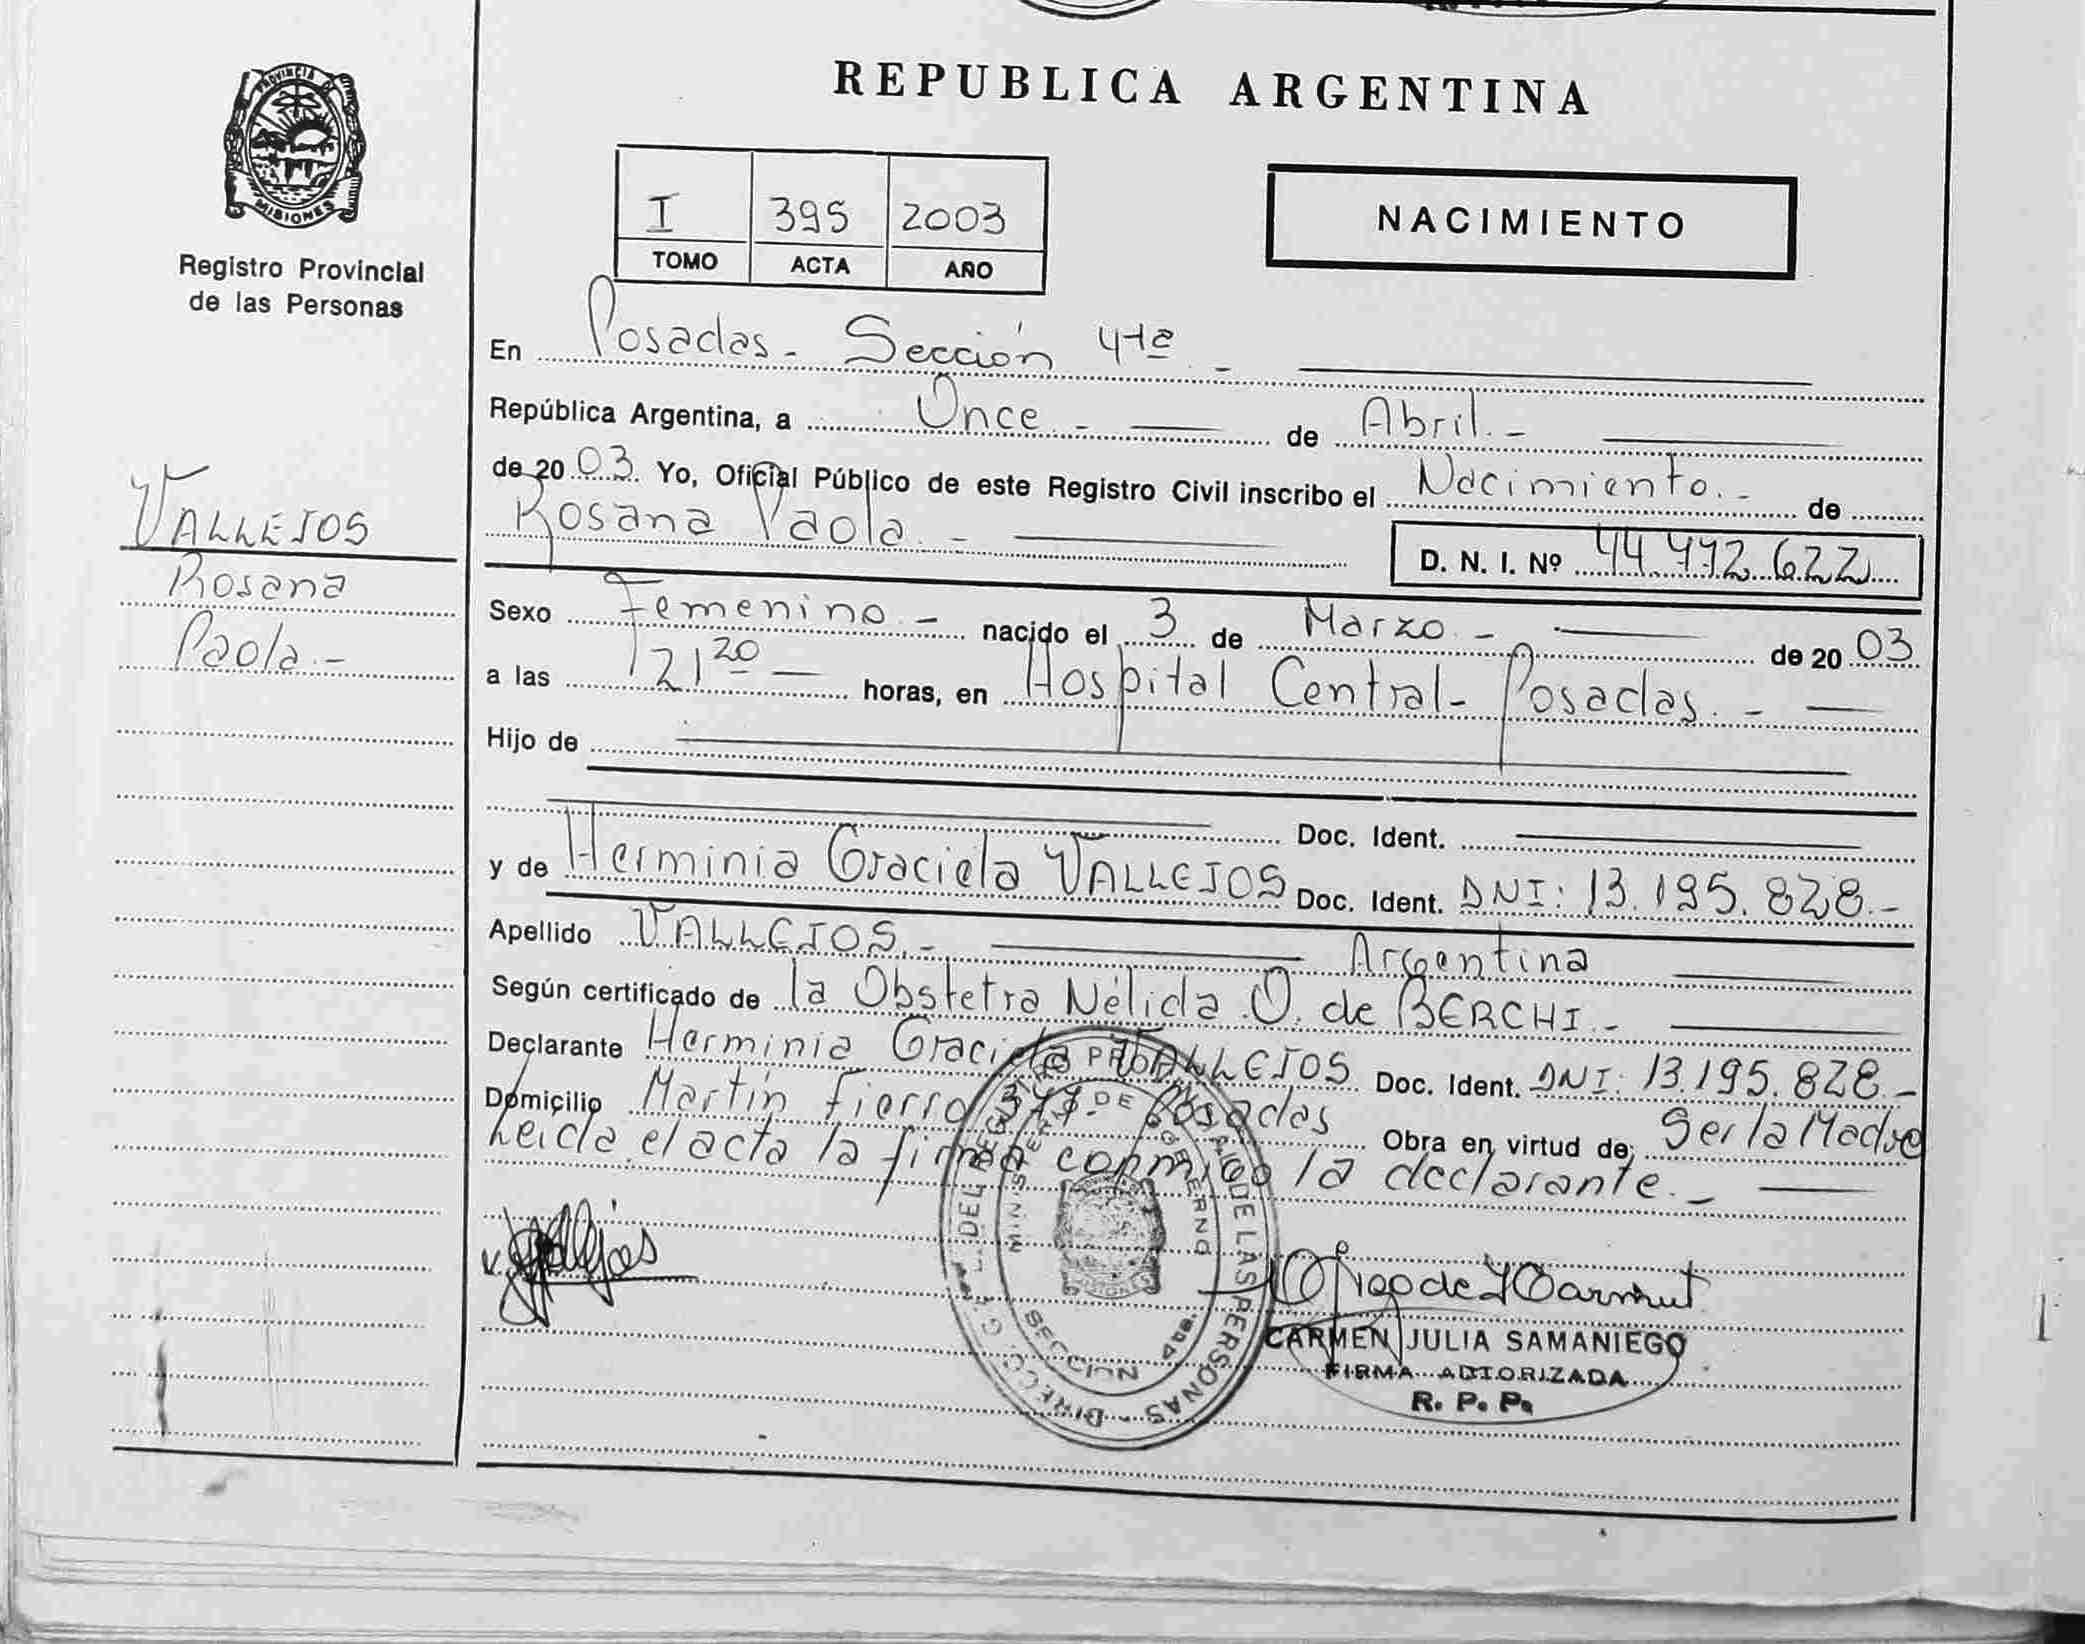 REPUBLICA ARGENTINA
PROVINCIA DE
MISIONES
Registro Provincial
de las Personas
I 395 2003
TOMO ACTA AÑO
NACIMIENTO
En Posadas - Sección 4ta -
República Argentina, a Once - de Abril. -
de 2003 Yo, Oficial Público de este Registro Civil inscribo el Nacimiento. - de
Rosana Paola. - D. N. I. Nº 44.472.622
VALLEJOS
Rosana
Paola.-
Sexo Femenino. - nacido el 3 de Marzo. - de 2003
a las 21 20 - horas, en Hospital Central - Posadas. -
Hijo de
Doc. Ident.
y de Herminia Graciela VALLEJOS Doc. Ident. DNI: 13.195.828.-
Apellido VALLEJOS. - Argentina
Según certificado de la Obstetra Nélida O. de BERCHI. -
Declarante Herminia Graciela VALLEJOS Doc. Ident. DNI: 13.195.828.-
Domicilio Martín Fierro Posadas Obra en virtud de: Ser la Madre
Leida el acta la firma conmigo la declarante. -
Vallejos
DEL REGISTRO PROVINCIAL DE LAS PERSONAS -
MINISTERIO DE GOBIERNO
SECCION 4ta.
CARMEN JULIA SAMANIEGO
FIRMA AUTORIZADA
R. P. P.